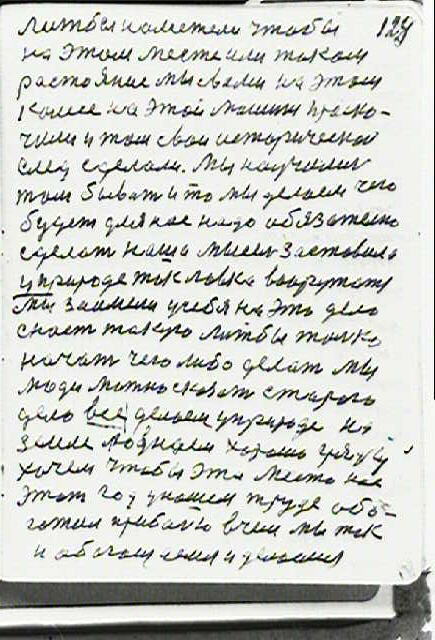 129
лишь бы наметели чтобы
на этом месте или таком
растояние мы свами на этом
колесе на этой машини праско-
чили и там свои исторической
след сделали. Мы научились
там бывать и то мы делаем чего
будет для нас надо обязательно
сделать наша мысль заставила
у природе так ловка вооружать
мы заимели у себя на это дело
снасть такую лишь бы толко
начать чего либо делать мы
люди можно сказать старого
дело все делаем у природе на
земле людям хорошо
хочем чтобы это место нас
этот год у нашем труде обо-
готил прибавю в чем мы так
и обогощаемся и делаемся